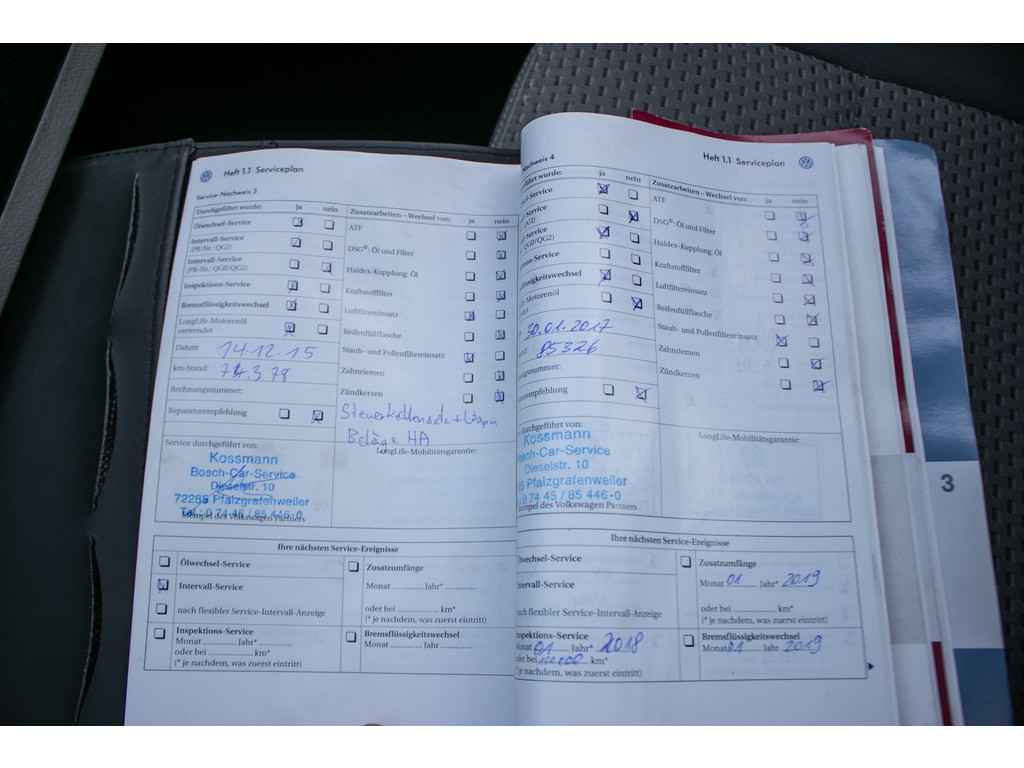 Heft 1.1 Serviceplan
Service-Nachweis 3
Durchgeführt wurde: ja nein
Ölwechsel-Service
Intervall-Service
(PR-Nr.: QG2)
Intervall-Service
(PR-Nr.: QG0/QG2)
Inspektions-Service
Bremsflüssigkeitswechsel
LongLife-Motorenöl
verwendet
Datum: 14.12.15
km-Stand:
Rechnungsnummer:
Reparaturempfehlung
Zusatzarbeiten – Wechsel von: ja nein
ATF
DSG®: Öl und Filter
Haldex-Kupplung: Öl
Kraftstofffilter
Luftfiltereinsatz
Reifenfüllflasche
Staub- und Pollenfiltereinsatz
Zahnriemen
Zündkerzen
Beläge HA
LongLife-Mobilitätsgarantie:
Service durchgeführt von:
Kossmann
Bosch-Car-Service
Dieselstr. 10
72285 Pfalzgrafenweiler
Tel.: 0 74 45 / 85 446-0
Stempel des Volkswagen Partners
Ihre nächsten Service-Ereignisse
Ölwechsel-Service
Intervall-Service
nach flexibler Service-Intervall-Anzeige
Inspektions-Service
Monat Jahr*
oder bei km*
(* je nachdem, was zuerst eintritt)
Zusatzumfänge
Monat Jahr*
oder bei km*
(* je nachdem, was zuerst eintritt)
Bremsflüssigkeitswechsel
Monat Jahr
Heft 1.1 Serviceplan
Nachweis 4
wurde: ja nein
Service
Service
Service
QG0/QG2)
Service
wechsel
Motorenöl
30.01.2017
85326
Zusatzarbeiten – Wechsel von: ja nein
ATF
DSG®: Öl und Filter
Haldex-Kupplung: Öl
Kraftstofffilter
Luftfiltereinsatz
Reifenfüllflasche
Staub- und Pollenfiltereinsatz
Zahnriemen
Zündkerzen
LongLife-Mobilitätsgarantie:
durchgeführt von:
Kossmann
Bosch-Car-Service
Dieselstr. 10
Pfalzgrafenweiler
0 74 45 / 85 446-0
Stempel des Volkswagen Partners
Ihre nächsten Service-Ereignisse
Ölwechsel-Service
Intervall-Service
nach flexibler Service-Intervall-Anzeige
Inspektions-Service
Monat 01 Jahr* 2018
oder bei km*
(* je nachdem, was zuerst eintritt)
Zusatzumfänge
Monat 01 Jahr* 2019
oder bei km*
(* je nachdem, was zuerst eintritt)
Bremsflüssigkeitswechsel
Monat 01 Jahr 2019
3